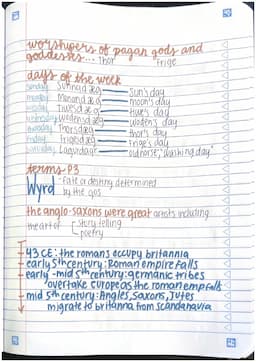 worshipers of pagan gods and
goddesses... Thor Frige
days of the week
Sunday Sunnadæg Sun's day
monday Monandæg moon's day
Tuesday Tiwesdæg Tiwe's day
Wednesday Wodensdæg Woden's day
thursday Thorsdæg thor's day
friday Frigedæg Frige's day
saturday oldnorse, "washing day"
terms P3
Wyrd - Fate or destiny determined
by the gos
the anglo-saxons were great artists including
the art of story telling
poetry
43 CE: the romans occupy britannia
early 5th century: Roman empire Falls
early-mid 5th century: germanic tribes
overtake europe as the roman emp falls
mid 5th century: Angles, Saxons, Jutes
migrate to britannia from scandanavia